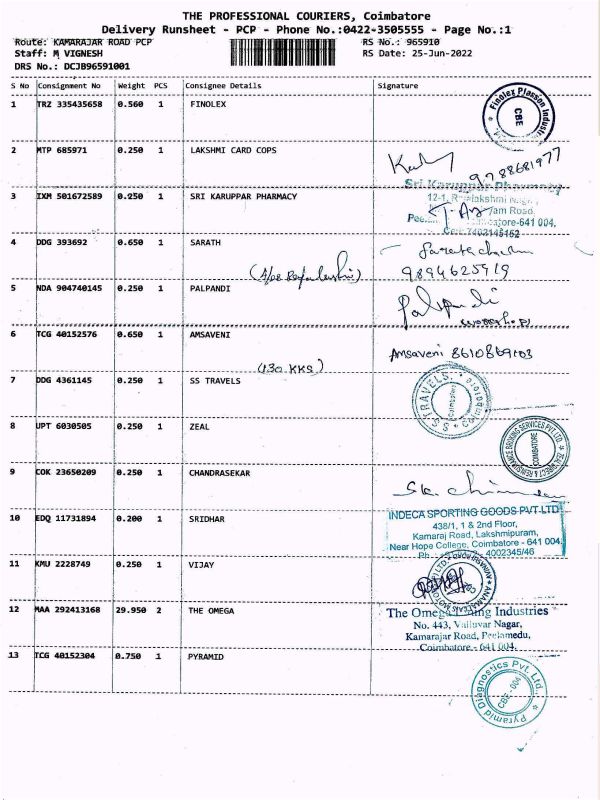 THE PROFESSIONAL COURIERS, Coimbatore
Delivery Runsheet - PCP - Phone No.:0422-3505555 - Page No.:1
Route: KAMARAJAR ROAD PCP RS No.: 965910
Staff: M VIGNESH RS Date: 25-Jun-2022
DRS No.: DCJB96591001
S No Consignment No Weight PCS Consignee Details Signature
1 TRZ 335435658 0.560 1 FINOLEX
Finolex Plasson Industr
CBE
2 MTP 685971 0.250 1 LAKSHMI CARD COPS
9788681977
3 IXM 501672589 0.250 1 SRI KARUPPAR PHARMACY
Sri Karuppar Pharmacy
Road,
-641 004.
4 DDG 393692 0.650 1 SARATH
9894625919
5 NDA 904740145 0.250 1 PALPANDI
Palpandi
6 TCG 40152576 0.650 1 AMSAVENI
Amsaveni 8610869103
(130 KKS)
7 DDG 4361145 0.250 1 SS TRAVELS
SS TRAVELS
Coimbatore
8 UPT 6030505 0.250 1 ZEAL
COIMBATORE
9 COK 23650209 0.250 1 CHANDRASEKAR
10 EDQ 11731894 0.200 1 SRIDHAR
INDECA SPORTING GOODS PVT.LTD
438/1, 1 & 2nd Floor,
Kamaraj Road, Lakshmipuram,
Near Hope College, Coimbatore - 641 004.
Ph 4002345/46
11 KMU 2228749 0.250 1 VIJAY
12 MAA 292413168 29.950 2 THE OMEGA
The Omega Industries
No. 443, Valluvar Nagar,
Kamarajar Road, Peelamedu,
Coimbatore - 641 004.
13 TCG 40152304 0.750 1 PYRAMID
Pyramid Diagnostics Pvt. Ltd.,
CBE - 004